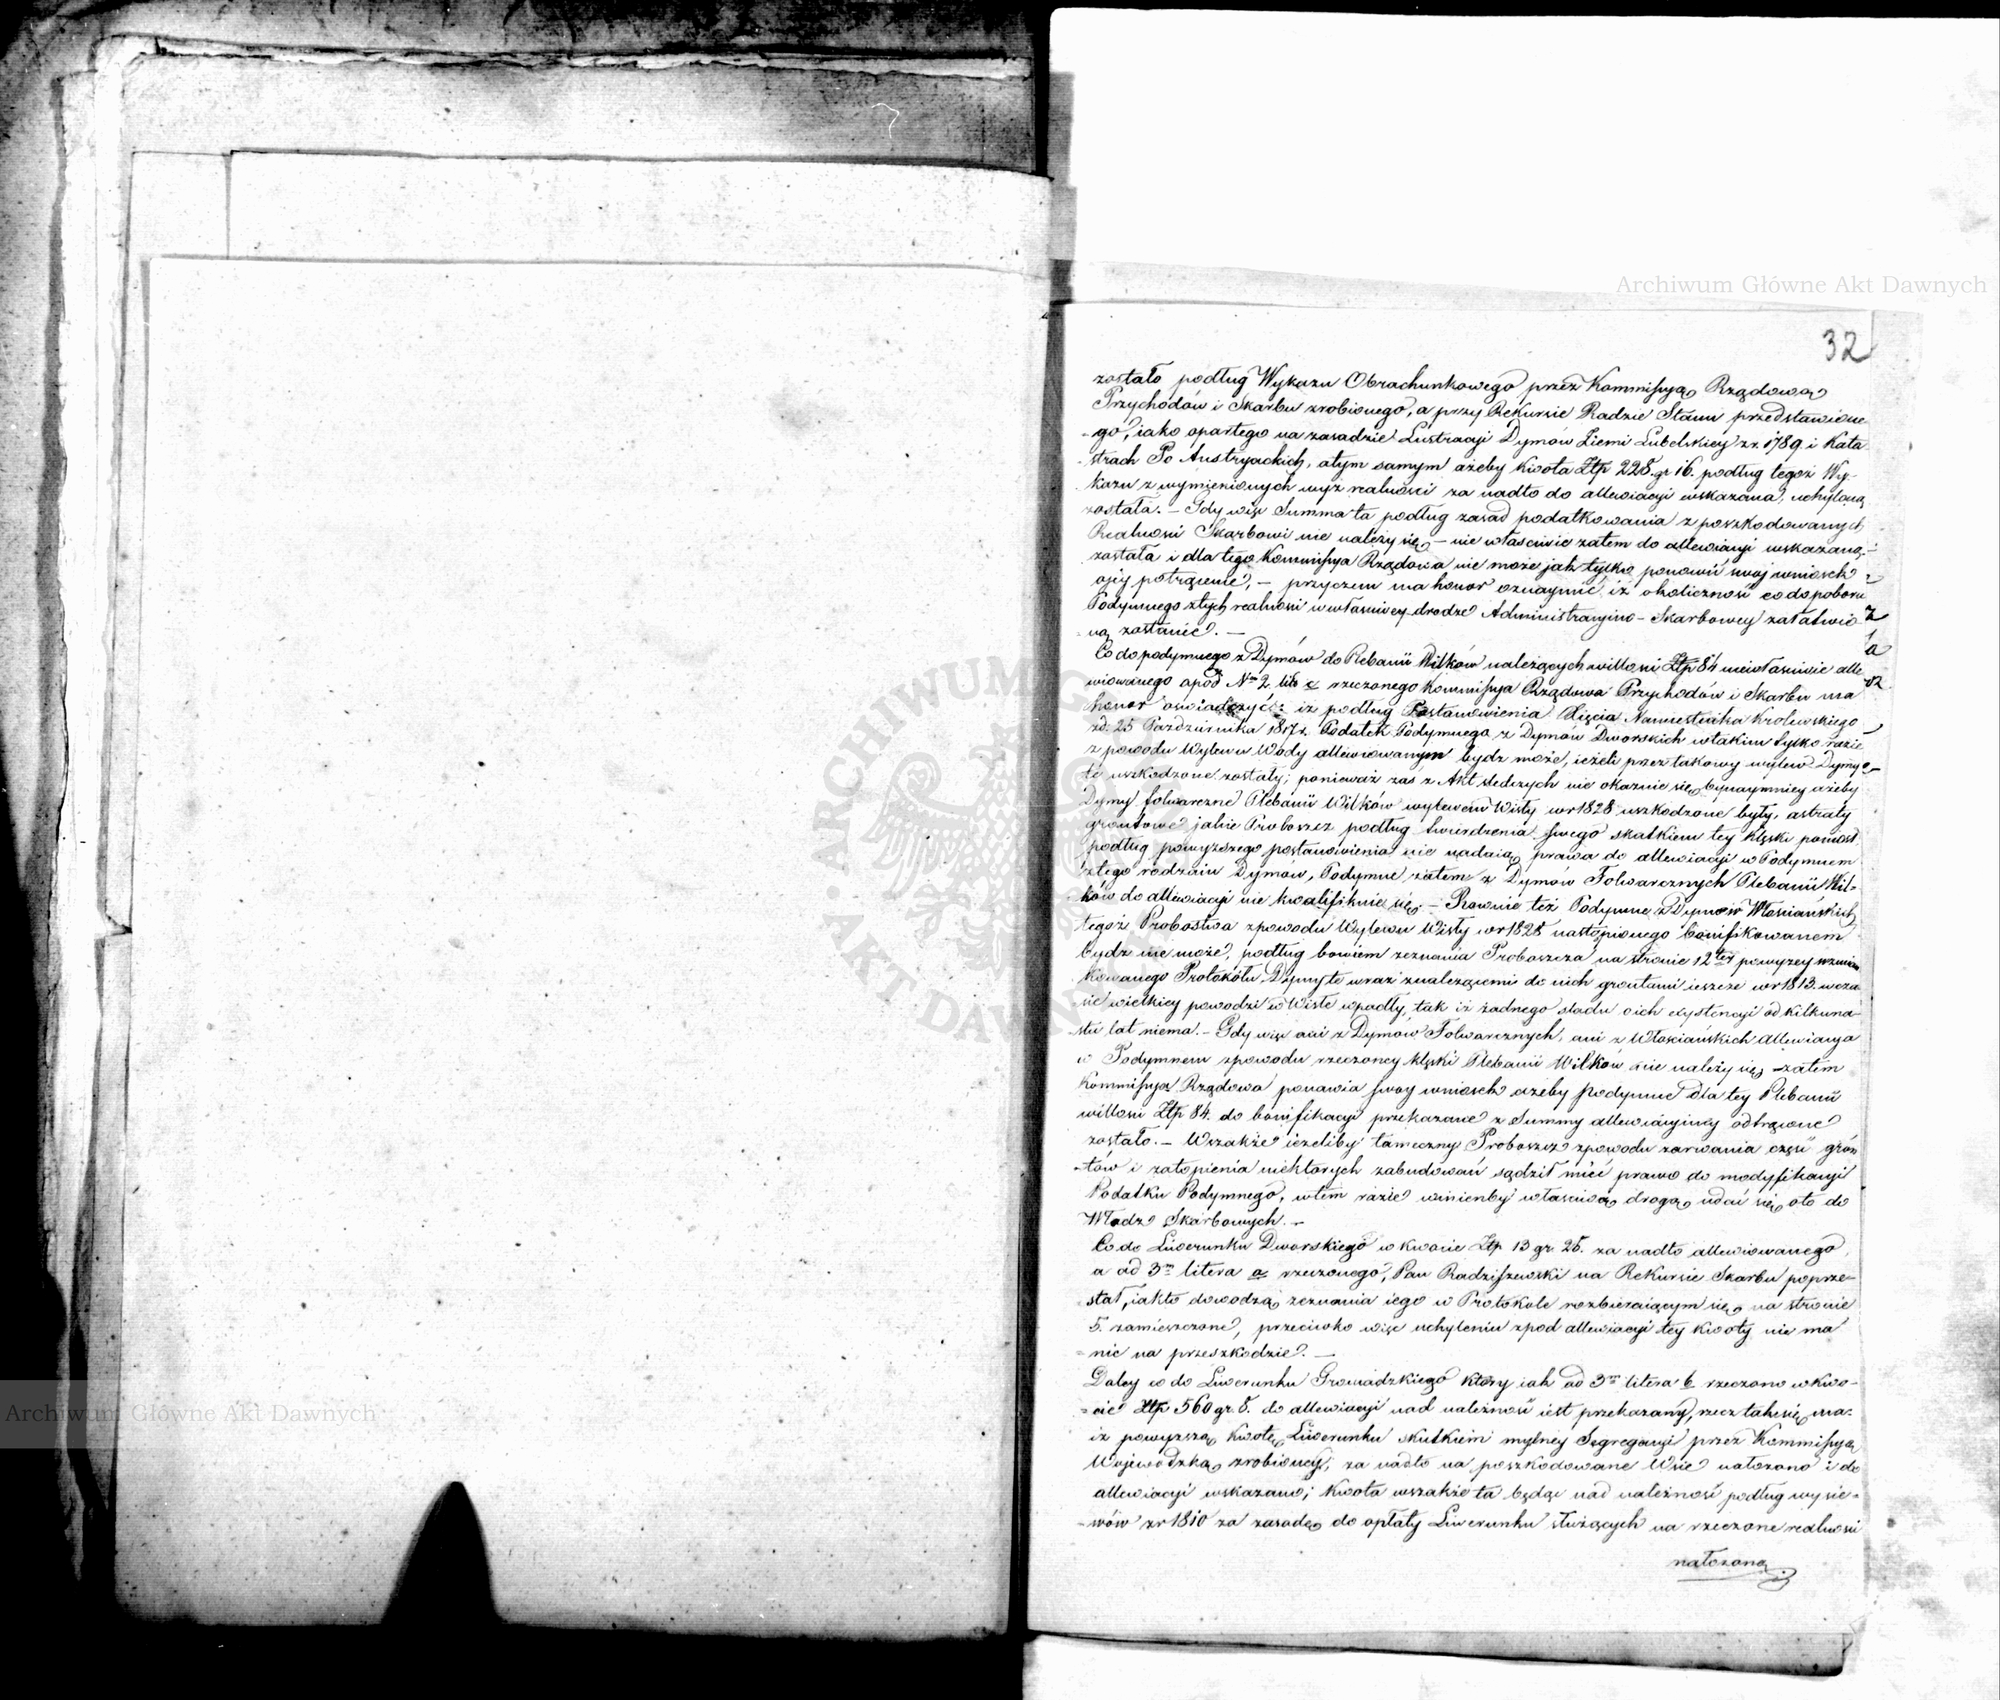 32
zostało podług Wykazu Obrachunkowego przez Kommissyą Rządową
Przychodów i Skarbu zrobionego, a przy Rekursie Radzie Stanu przedstawione
-go, iako opartego na zasadzie Lustracyi Dymów Ziemi Lubelskiey z r. 1789 i Kata
-strach Po Austryackich, a tym samym ażeby kwota Złp 228 gr 16. podług tegoż Wy-
kazu z wymienionych wyż realności za nadto do allewiacyi wskazana, uchyloną
została. – Gdy więc Summa ta podług zasad podatkowania z poszkodowanych
Realności Skarbowi nie należy się – nie właściwie zatem do allewiacyi wskazaną
została i dla tego Kommissya Rządowa nie może jak tylko ponowić swoj wniosek
o jéy potrącenie, – przyczem ma honor oznaymić, iż okoliczność co do poboru
Podymnego z tych realności w właściwey drodze Administracyino-Skarbowey załatwio
-ną zostanie. –
Co do podymnego z Dymów do Plebanii Wilków należących w ilości Złp 84 niewłaściwie alle
wiowanego a pod Nm 2 lit c rzeczonego Kommissya Rządowa Przychodów i Skarbu ma
honor oświadczyć: iż podług Postanowienia Xięcia Namiestnika Krolewskiego
z d. 25 Października 1817 r. Podatek Podymnego z Dymów Dworskich w takim tylko razie
z powodu Wylewu Wody allewiowanym bydz może, ieżeli przez takowy wylew Dymy
te uszkodzone zostały; ponieważ zaś z Akt śledczych nie okazuie się bynaymniey ażeby
Dymy folwarczne Plebanii Wilków wylewem Wisły w r 1828 uszkodzone były, a straty
gruntowe jakie Proboszcz podług twierdzenia swego skutkiem tey klęski poniosł
podług powyższego postanowienia nie nadaią prawa do allewiacyi w Podymnem
z tego rodzaiu Dymów, Podymne zatem z Dymów Folwarcznych Plebanii Wil-
ków do allewiacyi nie kwalifikuie się. – Rownie też Podymne z Dymów Włosciańskich
tegoż Probostwa z powodu Wylewu Wisły w r 1828 nastąpionego bonifikowanem
bydz nie może, podług bowiem zeznania Proboszcza na stronie 12tey powyzey wzmian
kowanego Protokółu, Dymy te wraz z należącemi do nich gruntami ieszcze w r 1813. w cza
sie wielkiey powodzi w Wisłę wpadły, tak iż żadnego sladu o ich exystencyi od kilkuna-
stu lat niema. – Gdy więc ani z Dymów Folwarcznych, ani z Włościańskich allewiacya
w Podymnem z powodu rzeczoney klęski Plebanii Wilków nie należy się, zatem
Kommissya Rządowa ponawia swoy wniosek ażeby Podymne dla tey Plebanii
w ilości Złp 84. do bonifikacyi przekazane z Summy allewiacyiney odtrącone
zostało. – Wszakże ieżeliby tameczny Proboszcz z powodu zarwania części grun
-tów i zatopienia niektórych zabudowań sądził mieć prawo do modyfikacyi
Podatku Podymnego, w tem razie winienby właściwą drogą udać się o to do
Władz Skarbowych. –
Co do Liwerunku Dworskiego w kwocie Złp 13 gr 25. za nadto allewiowanego,
a ad 3m litera a rzeczonego, Pan Radziszewski na Rekursie Skarbu poprze-
-stał, iak to dowodzą zeznania iego w Protokole rozbieraiącym się na stronie
5. zamieszczone, przeciwko więc uchyleniu z pod allewiacyi tey kwoty nie ma
-nic na przeszkodzie. –
Daley co do Liwerunku Gromadzkiego który iak ad 3m litera b rzeczono w kwo-
-cie Złp 560 gr 8. do allewiacyi nad należność iest przekazany, rzecz tak się ma:
iż powyższą kwotę Liwerunku skutkiem mylney Segregacyi przez Kommissyą
Wojewódzką zrobioney, za nadto na poszkodowane Wsie nałożono i do
allewiacyi wskazano; kwota wszakże ta będąc nad należność podług wysie-
-wów z r 1810 za zasadę do opłaty Liwerunku służących na rzeczone realności
nałożoną
Archiwum Główne Akt Dawnych
Archiwum Główne Akt Dawnych